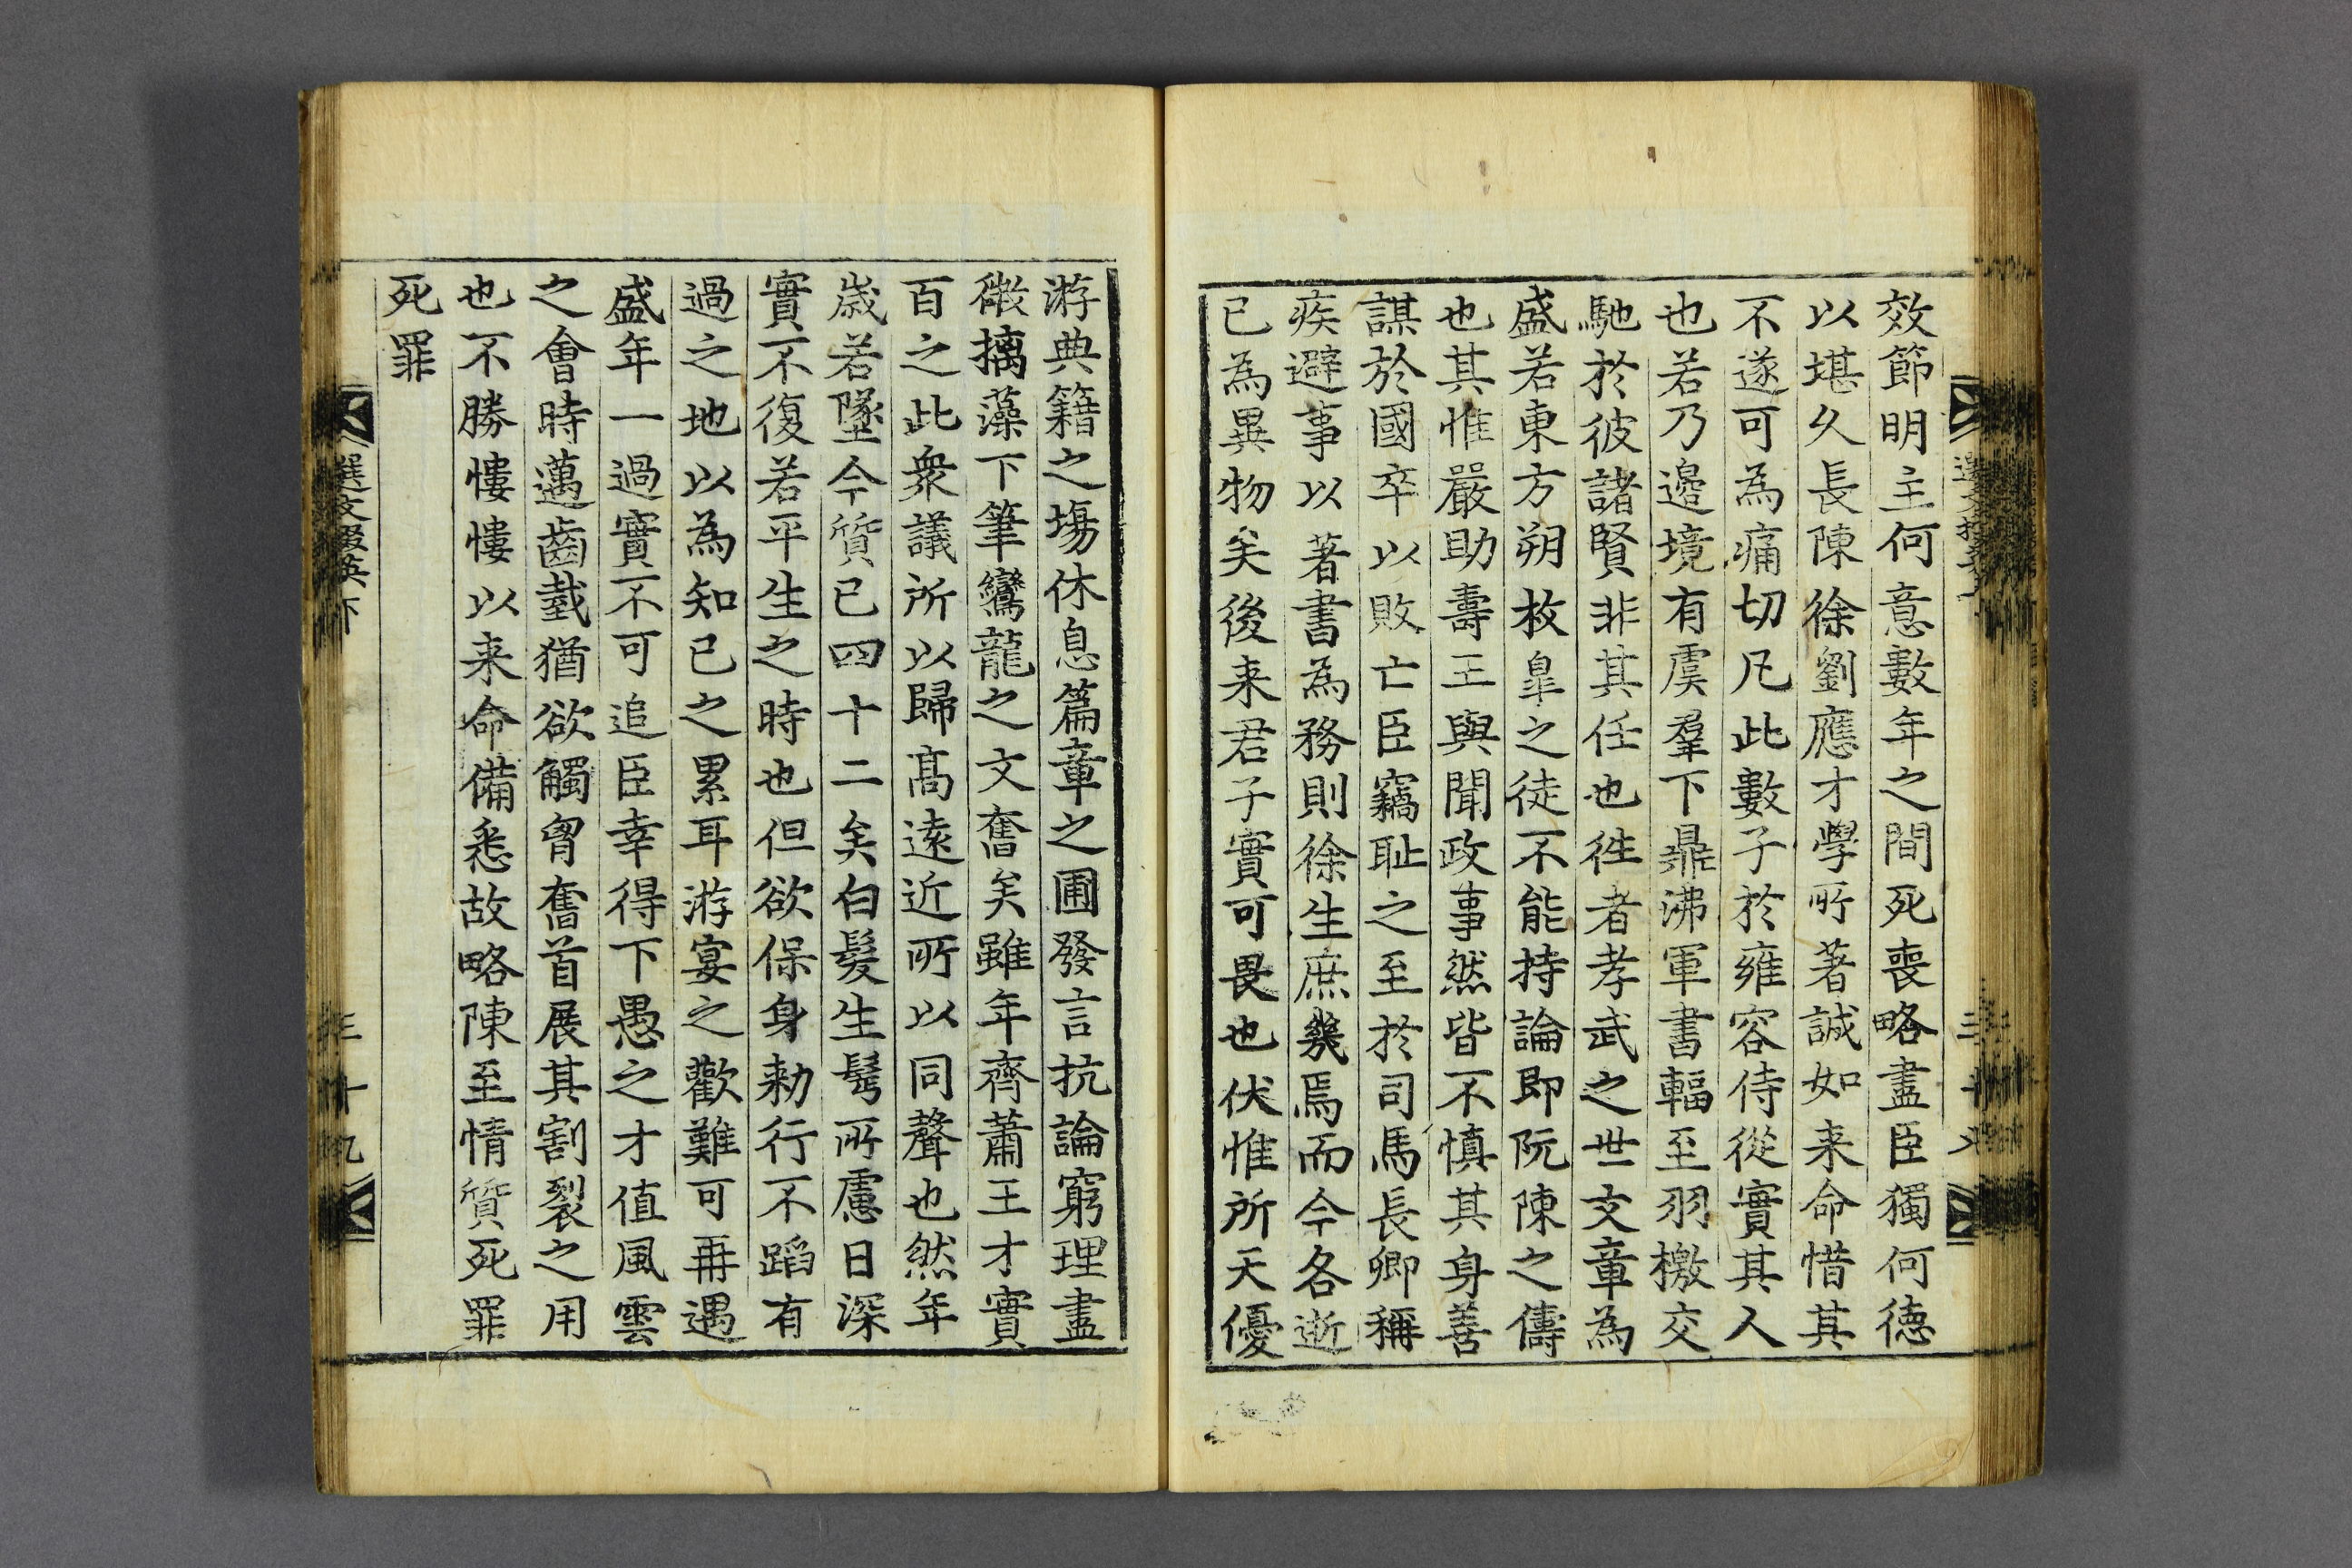 效節明主何意數年之間死喪略盡臣獨何德
以堪久長陳徐劉應才學所著誠如来命惜其
不遂可為痛切凡此數子於雍容侍從實其人
也若乃邊境有虞羣下鼎沸軍書輻至羽檄交
馳於彼諸賢非其任也徃者孝武之世文章為
盛若東方朔枚皐之徒不能持論即阮陳之儔
也其惟嚴助壽王與聞政事然皆不慎其身善
謀於國卒以敗亡臣竊耻之至於司馬長卿稱
疾避事以著書為務則徐生庶幾焉而今各逝
已為異物矣後来君子實可畏也伏惟所天優
游典籍之塲休息篇章之圃發言抗論窮理盡
微摛藻下筆鸞龍之文奮矣雖年齊蕭王才實
百之此衆議所以歸髙遠近所以同聲也然年
歲若墜今質已四十二矣白髮生鬢所慮日深
實不復若平生之時也但欲保身勑行不蹈有
過之地以為知已之累耳游宴之歡難可再遇
盛年一過實不可追臣幸得下愚之才值風雲
之會時邁齒臷猶欲觸胷奮首展其割裂之用
也不勝慺慺以来命備悉故略陳至情質死罪
死罪
選文掇英下
三十九